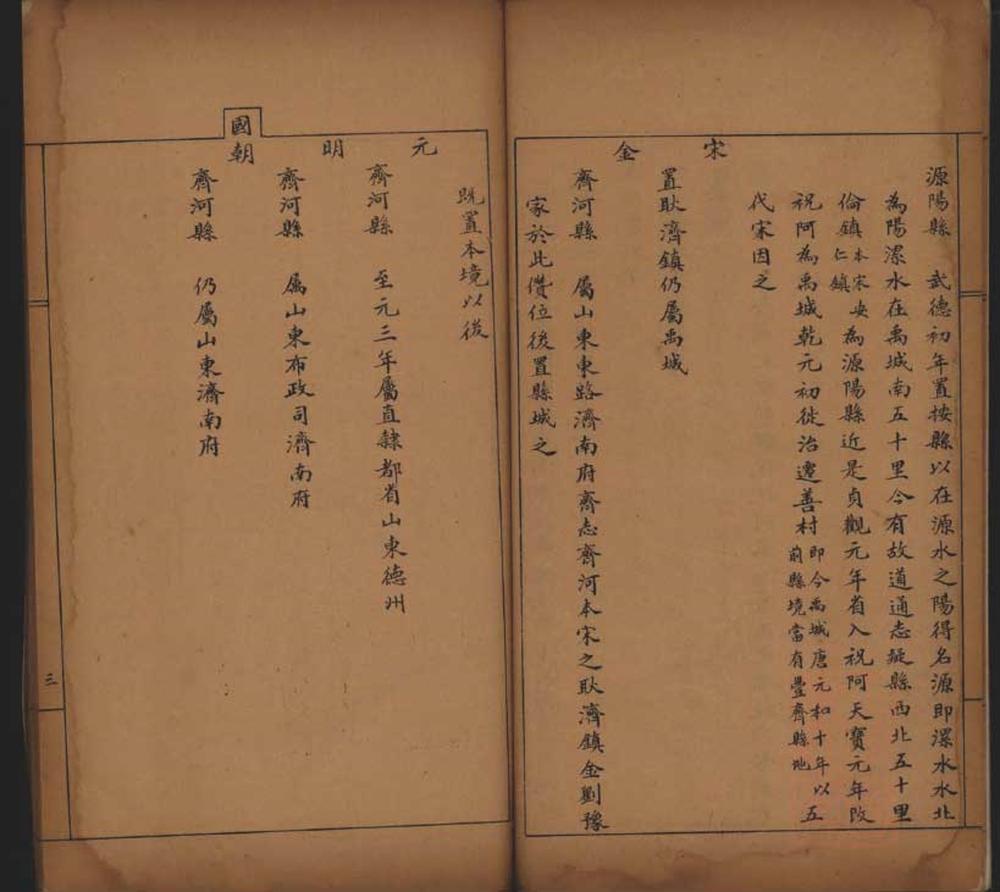 源陽縣　武德初年置按縣以在源水之陽得名源即漯水水北
為陽漯水在禹城南五十里今有故道通志縱縣西北五十里
倫鎮本宋安仁鎮為源陽縣近是貞觀元年省入祝阿天寶元年改
祝阿為禹城乾元初徙治遷善村即今禹城唐元和十年以五前縣境當有豐齊縣地
代宋因之
宋
置耿濟鎮仍屬禹城
金
齊河縣　屬山東東路濟南府齊志齊河本宋之耿濟鎮金劉豫
家於此僭位後置縣城之
既置本境以後
元
齊河縣　至元三年屬直隸都省山東德州
明
齊河縣　屬山東布政司濟南府
國朝
齊河縣　仍屬山東濟南府
三